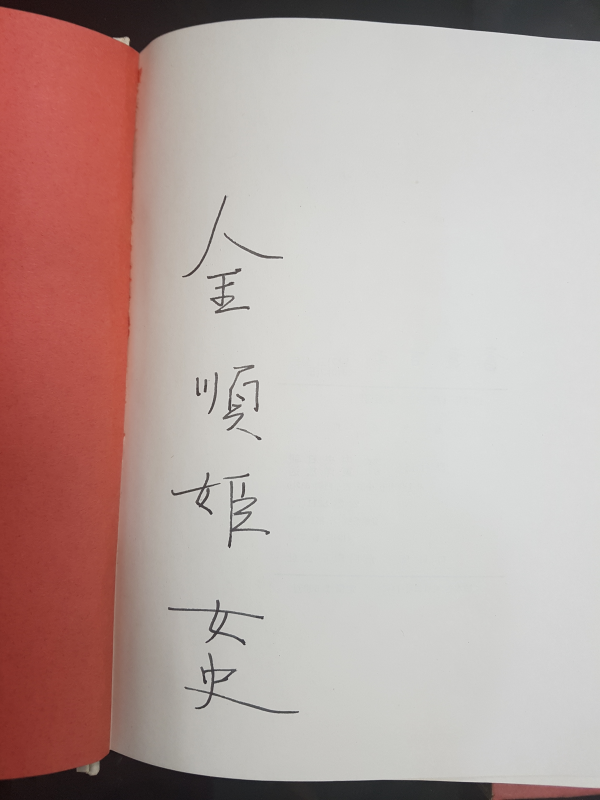 金順姬女史